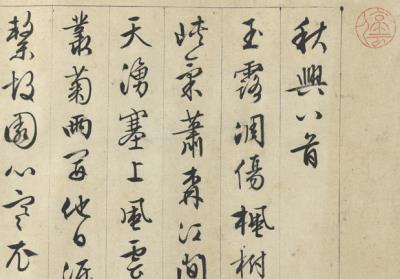 秋興八首
玉露凋傷楓樹
峽氣蕭森江間
天湧塞上風雲
叢菊兩開他日淚
繫故園心寒衣